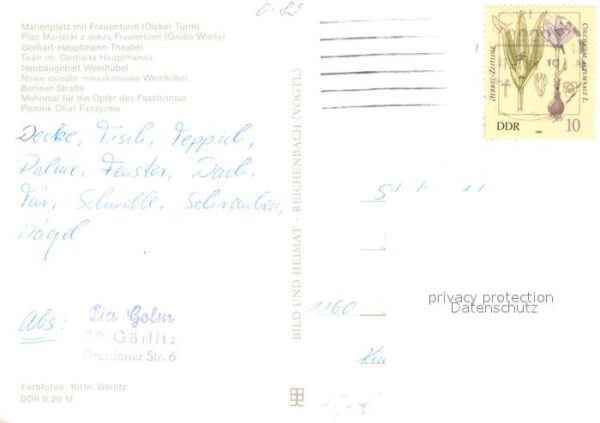 Marienplatz mit Frauenturm (Dicker Turm)
Plac Mariacki z wieżą Frauenturm (Gruba Wieża)
Gerhart-Hauptmann-Theater
Teatr im. Gerharta Hauptmanna
Neubaugebiet Weinhübel
Nowe osiedle mieszkaniowe Weinhübel
Berliner Straße
Mahnmal für die Opfer des Faschismus
Pomnik Ofiar Faszyzmu
Decke, Tisch, Teppich,
Palme, Fenster, Dach,
Tür, Schwelle, Schrauben,
Nägel
Abs:
Pia
Görlitz
Dresdener Str. 6
Farbfotos: Kitte, Görlitz
DDR 0,20 M
BILD UND HEIMAT · REICHENBACH (VOGTL)
Herbst-Zeitlose
COLCHICUM AUTUMNALE L.
DDR
10
1160
privacy protection
Datenschutz